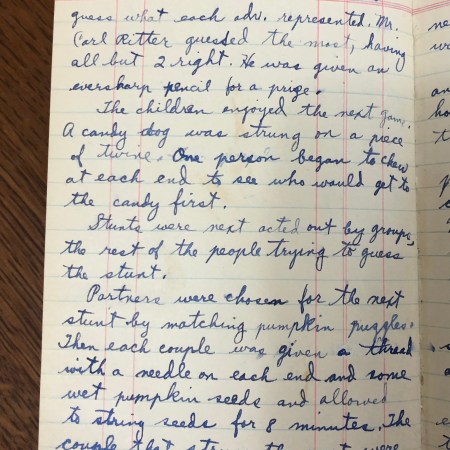 guess what each adv. represented. Mr.
Carl Ritter guessed the most, having
all but 2 right. He was given an
eversharp pencil for a prize.
The children enjoyed the next game.
A candy dog was strung on a piece
of twine. One person began to chew
at each end to see who would get to
the candy first.
Stunts were next acted out by groups,
the rest of the people trying to guess
the stunt.
Partners were chosen for the next
stunt by matching pumpkin puzzles.
Then each couple was given a thread
with a needle on each end and some
wet pumpkin seeds and allowed
to string seeds for 8 minutes. The
couple that